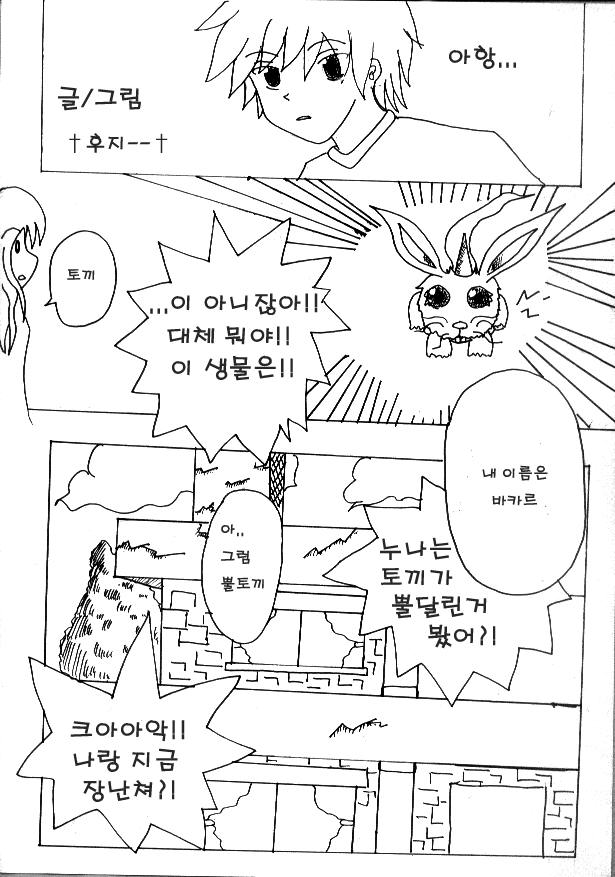 아항...
글/그림
†후지--†
토끼
...이 아니잖아!!
대체 뭐야!!
이 생물은!!
내 이름은
바카르
누나는
토끼가
뿔달린거
봤어?!
아..
그럼
뿔토끼
크아아악!!
나랑 지금
장난쳐?!